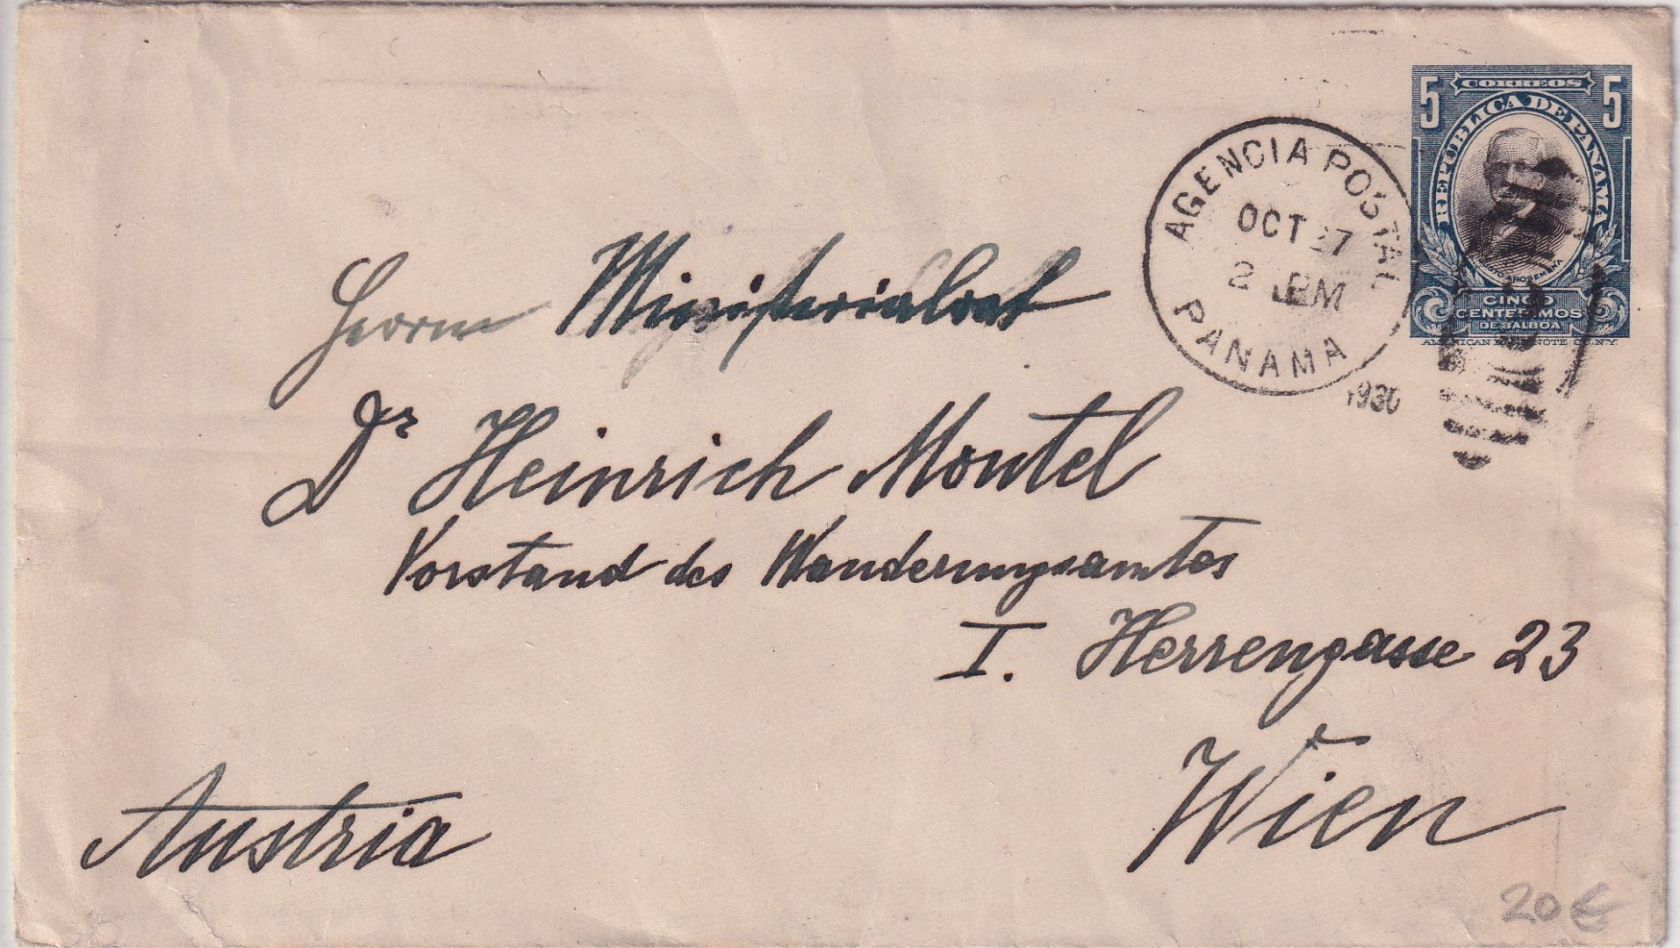 5 CORREOS 5
REPUBLICA DE PANAMA
CINCO
CENTESIMOS
DE BALBOA
AMERICAN BANK NOTE CO. N.Y.
AGENCIA POSTAL
OCT 27
2 PM
PANAMA
1930
Herrn Ministerialrat
Dr Heinrich Montel
Vorstand des Wanderungsamtes
I. Herrengasse 23
Wien
Austria
20€